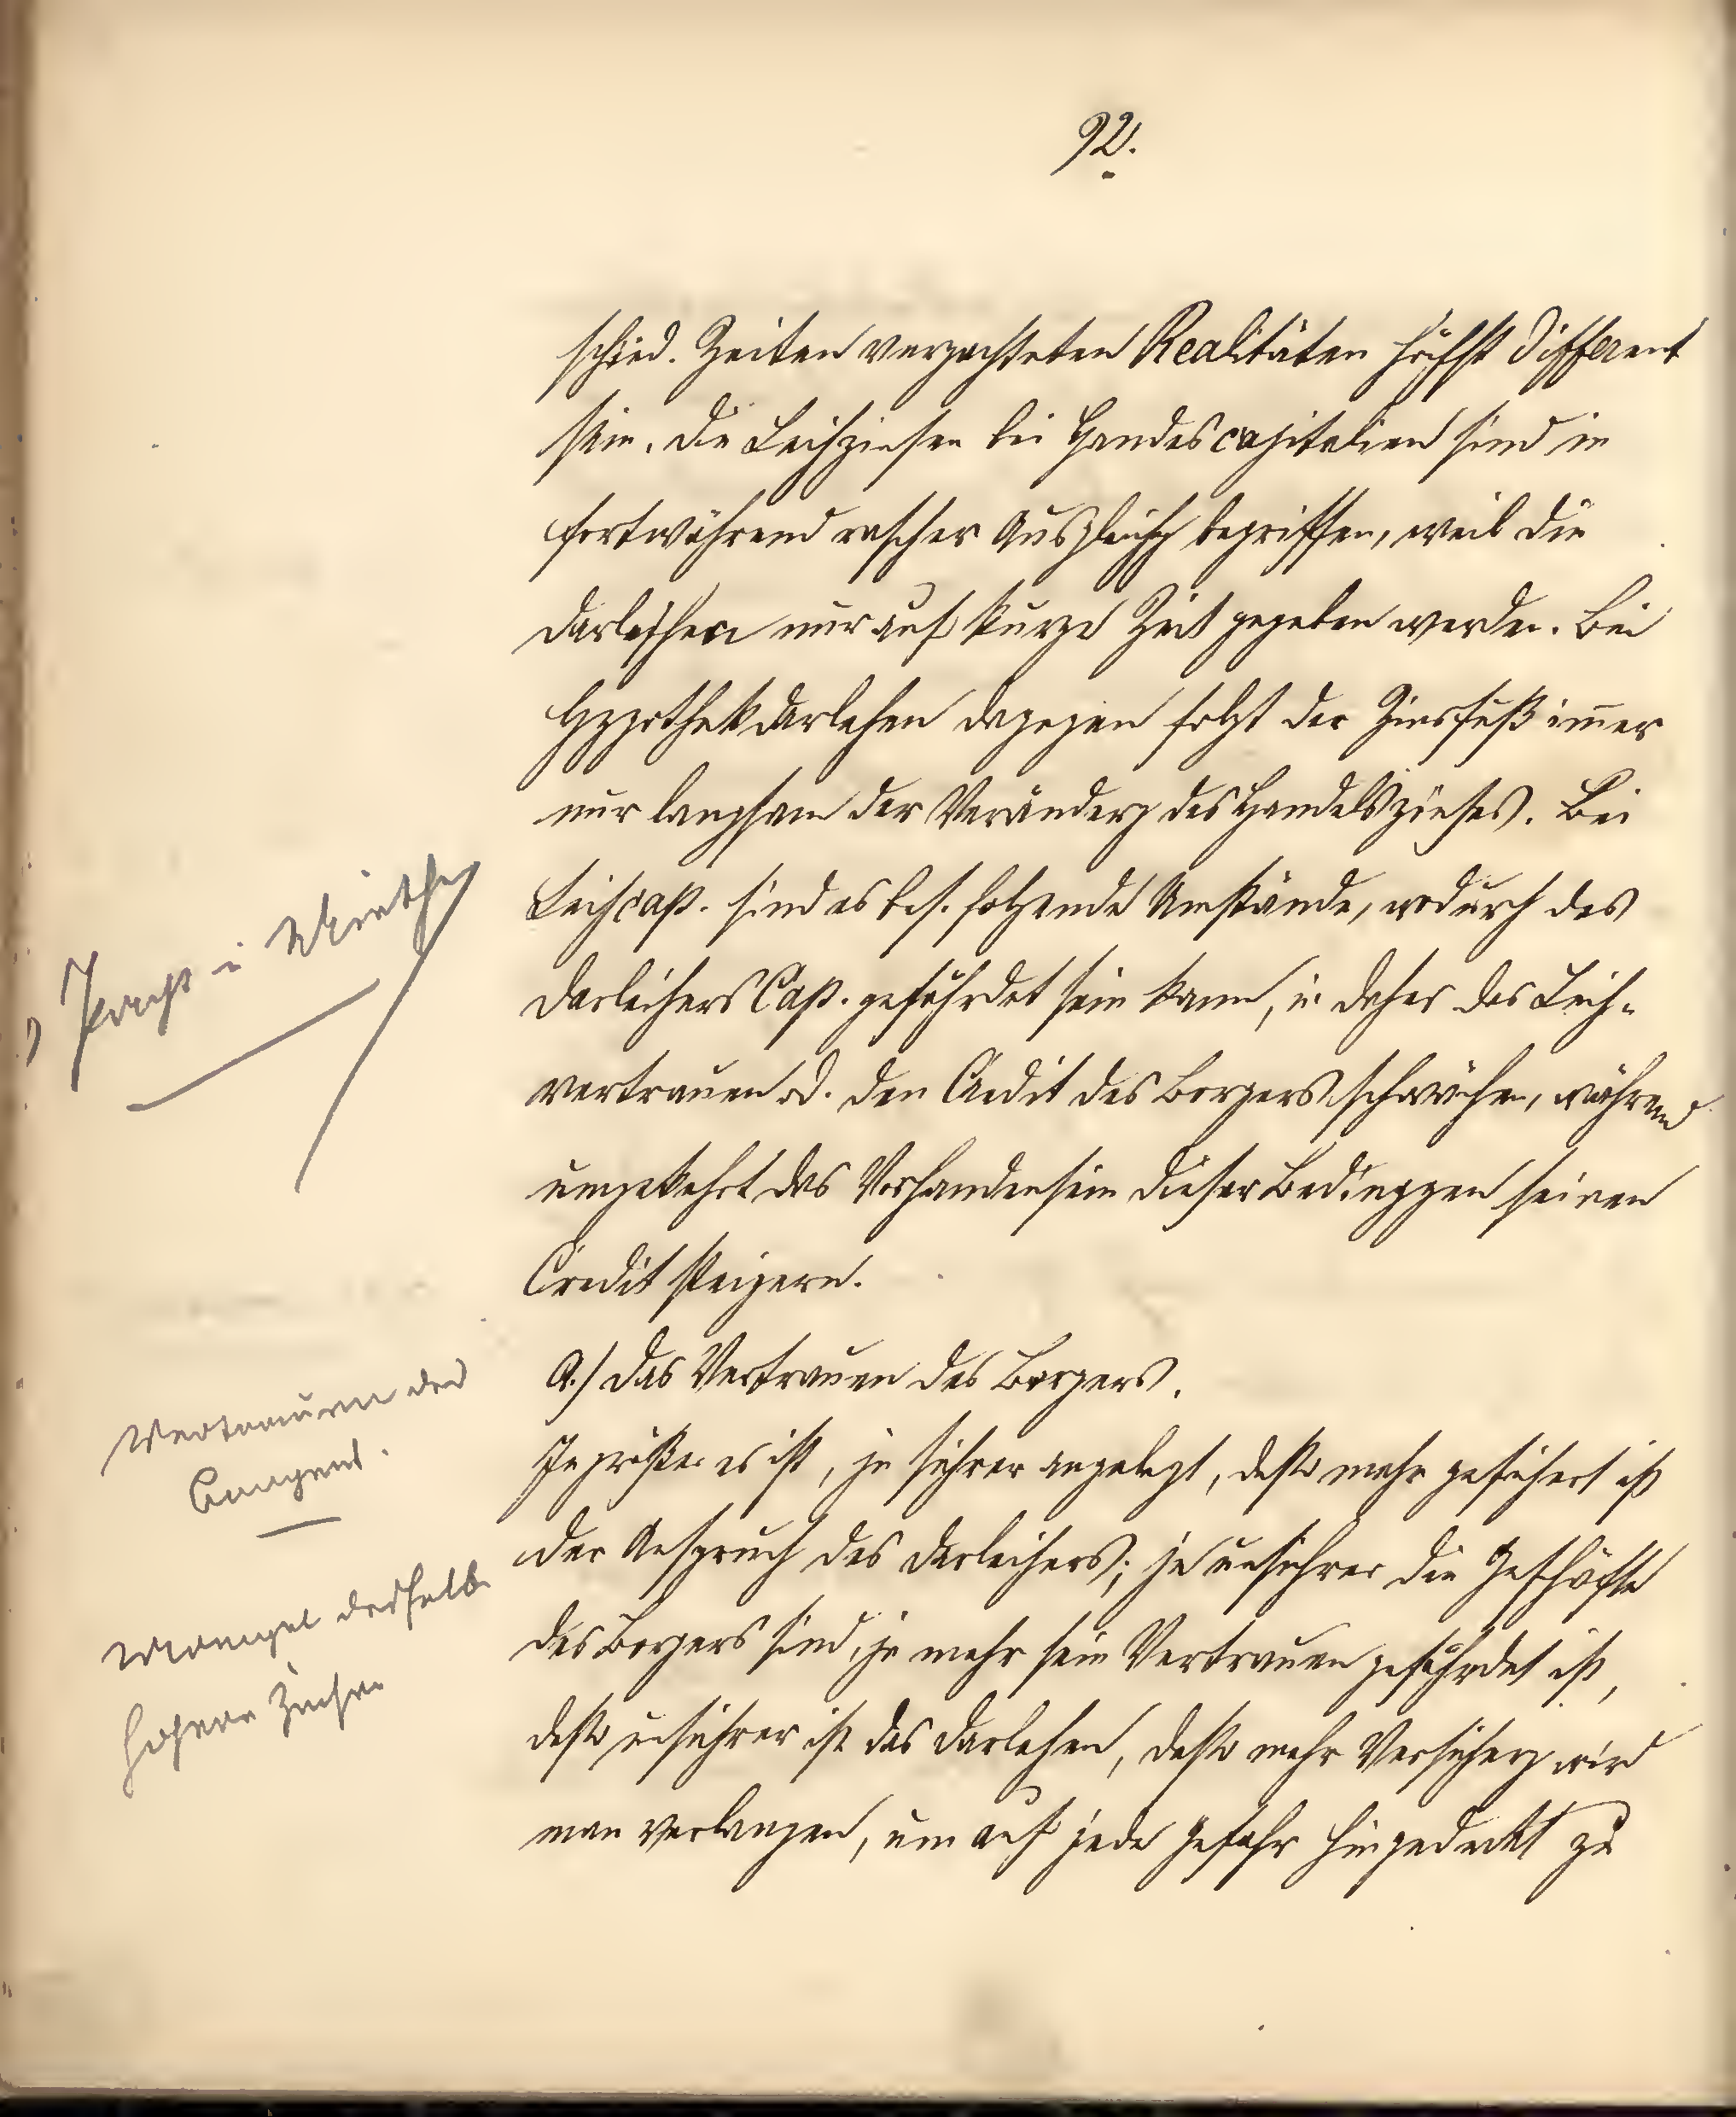 92.
schied. Zeiten verpachteten Realitäten höchst different
sein. Die Leihzinsen bei Handescapitalien sind in
fortwährend rascher Ausgleichg begriffen, weil die
Darleihen nur auf kurze Zeit gegeben werden. Bei
Hypothekdarlehen dagegen folgt der Zinsfuß im̄er
nur langsam der Veränderg des Handelszinses. Bei
Leihcap. sind es bes. folgende Umstände, wodurch des
Darleihers Cap. gefährdet sein kann, u. daher das Leih-
vertrauen od. den Credit des Borgers schwächen, während
umgekehrt das Vorhandensein dieser Bedinggen seinen
Credit steigern.
Pacht u Miethe
a./ Das Vertrauen des Borgers.
Je größer es ist, je sichrer angelegt, desto mehr gesichert ist
der Anspruch des Darleihers; je unsichrer die Geschäfte
des Borgers sind, je mehr sein Vertrauen gefährdet ist,
desto unsichrer ist das Darlehen, desto mehr Versicherg wird
man verlangen, um auf jede Gefahr hin gedeckt zu
Vertrauen des
Mangel desselb.
höhere Zinsen